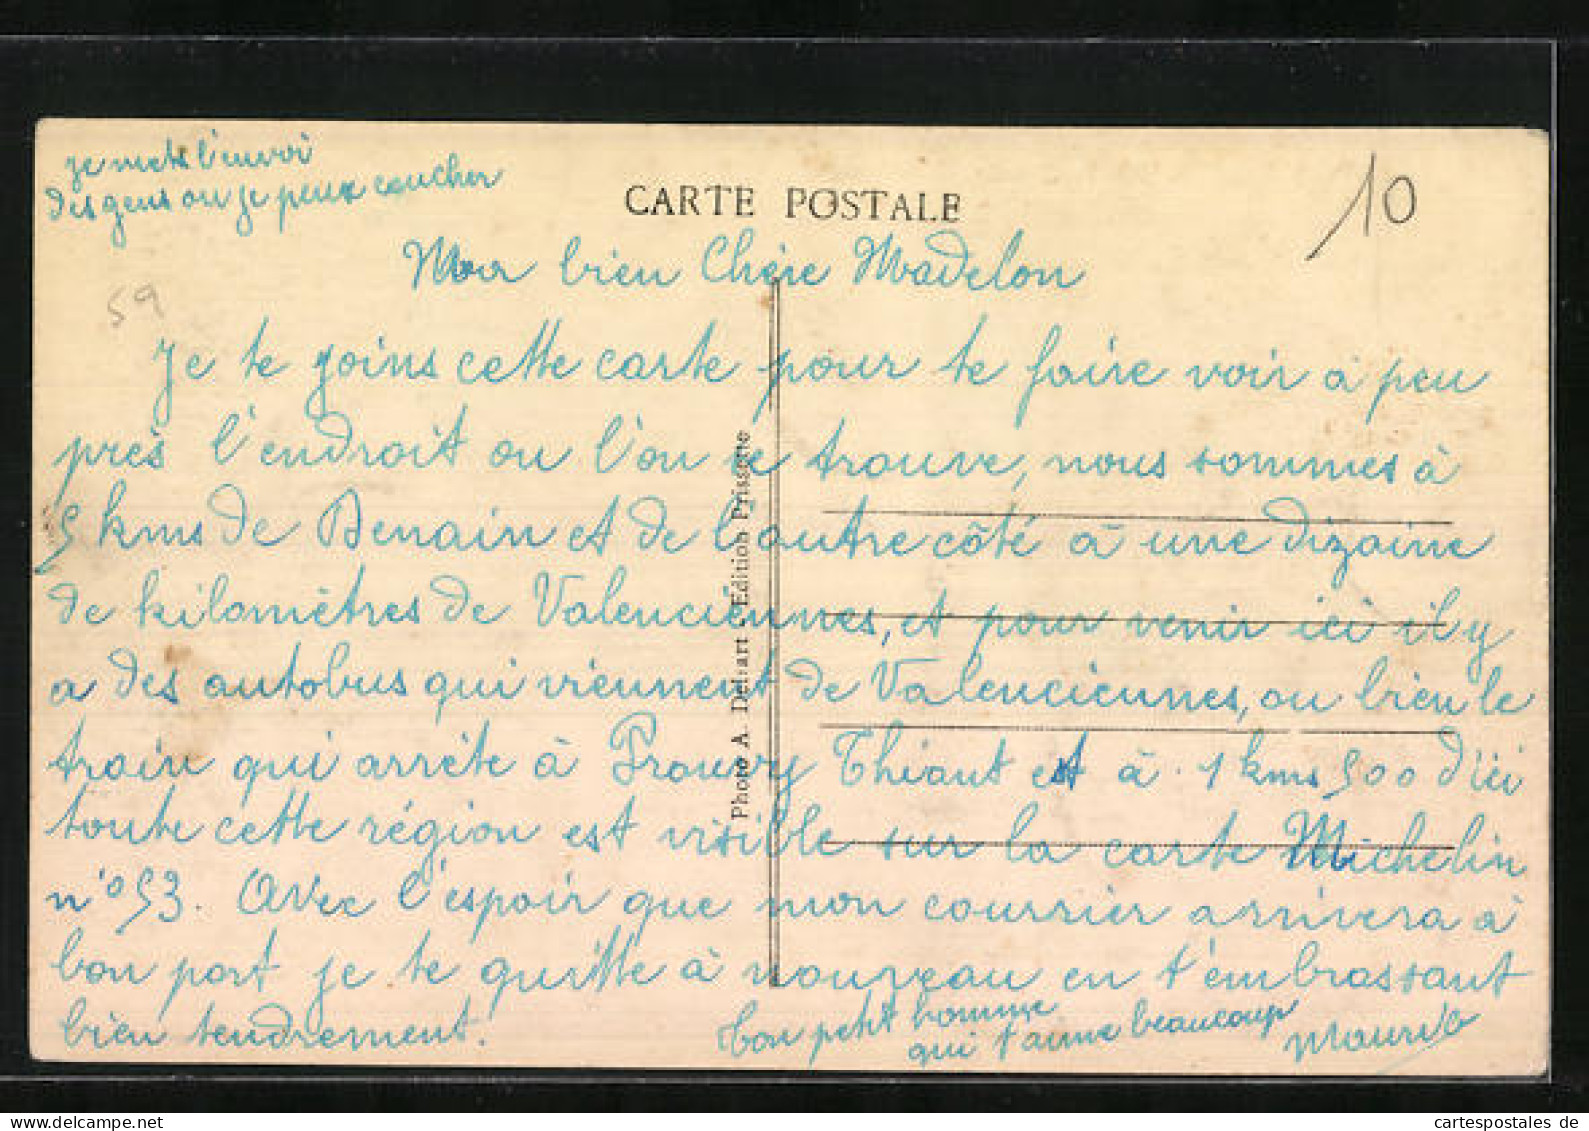 je mets l'envoi
des gens ou je peux coucher
CARTE POSTALE
10
Mon bien Chère Madelon
59
Je te joins cette carte pour te faire voir à peu
près l'endroit ou l'on se trouve, nous sommes à
5 kms de Denain et de l'autre côté à une dizaine
de kilomètres de Valenciennes, et pour venir ici il y
a des autobus qui viennent de Valenciennes, ou bien le
train qui arrête à Prouvy Thiant est à 1 kms 500 d'ici
toute cette région est visible sur la carte Michelin
n° 53. Avec l'espoir que mon courrier arrivera à
bon port je te quitte à nouveau en t'embrassant
bien tendrement.
ton petit homme
qui t'aime beaucoup
Photo A. Delsart - Edition Prissette
cartespostales de